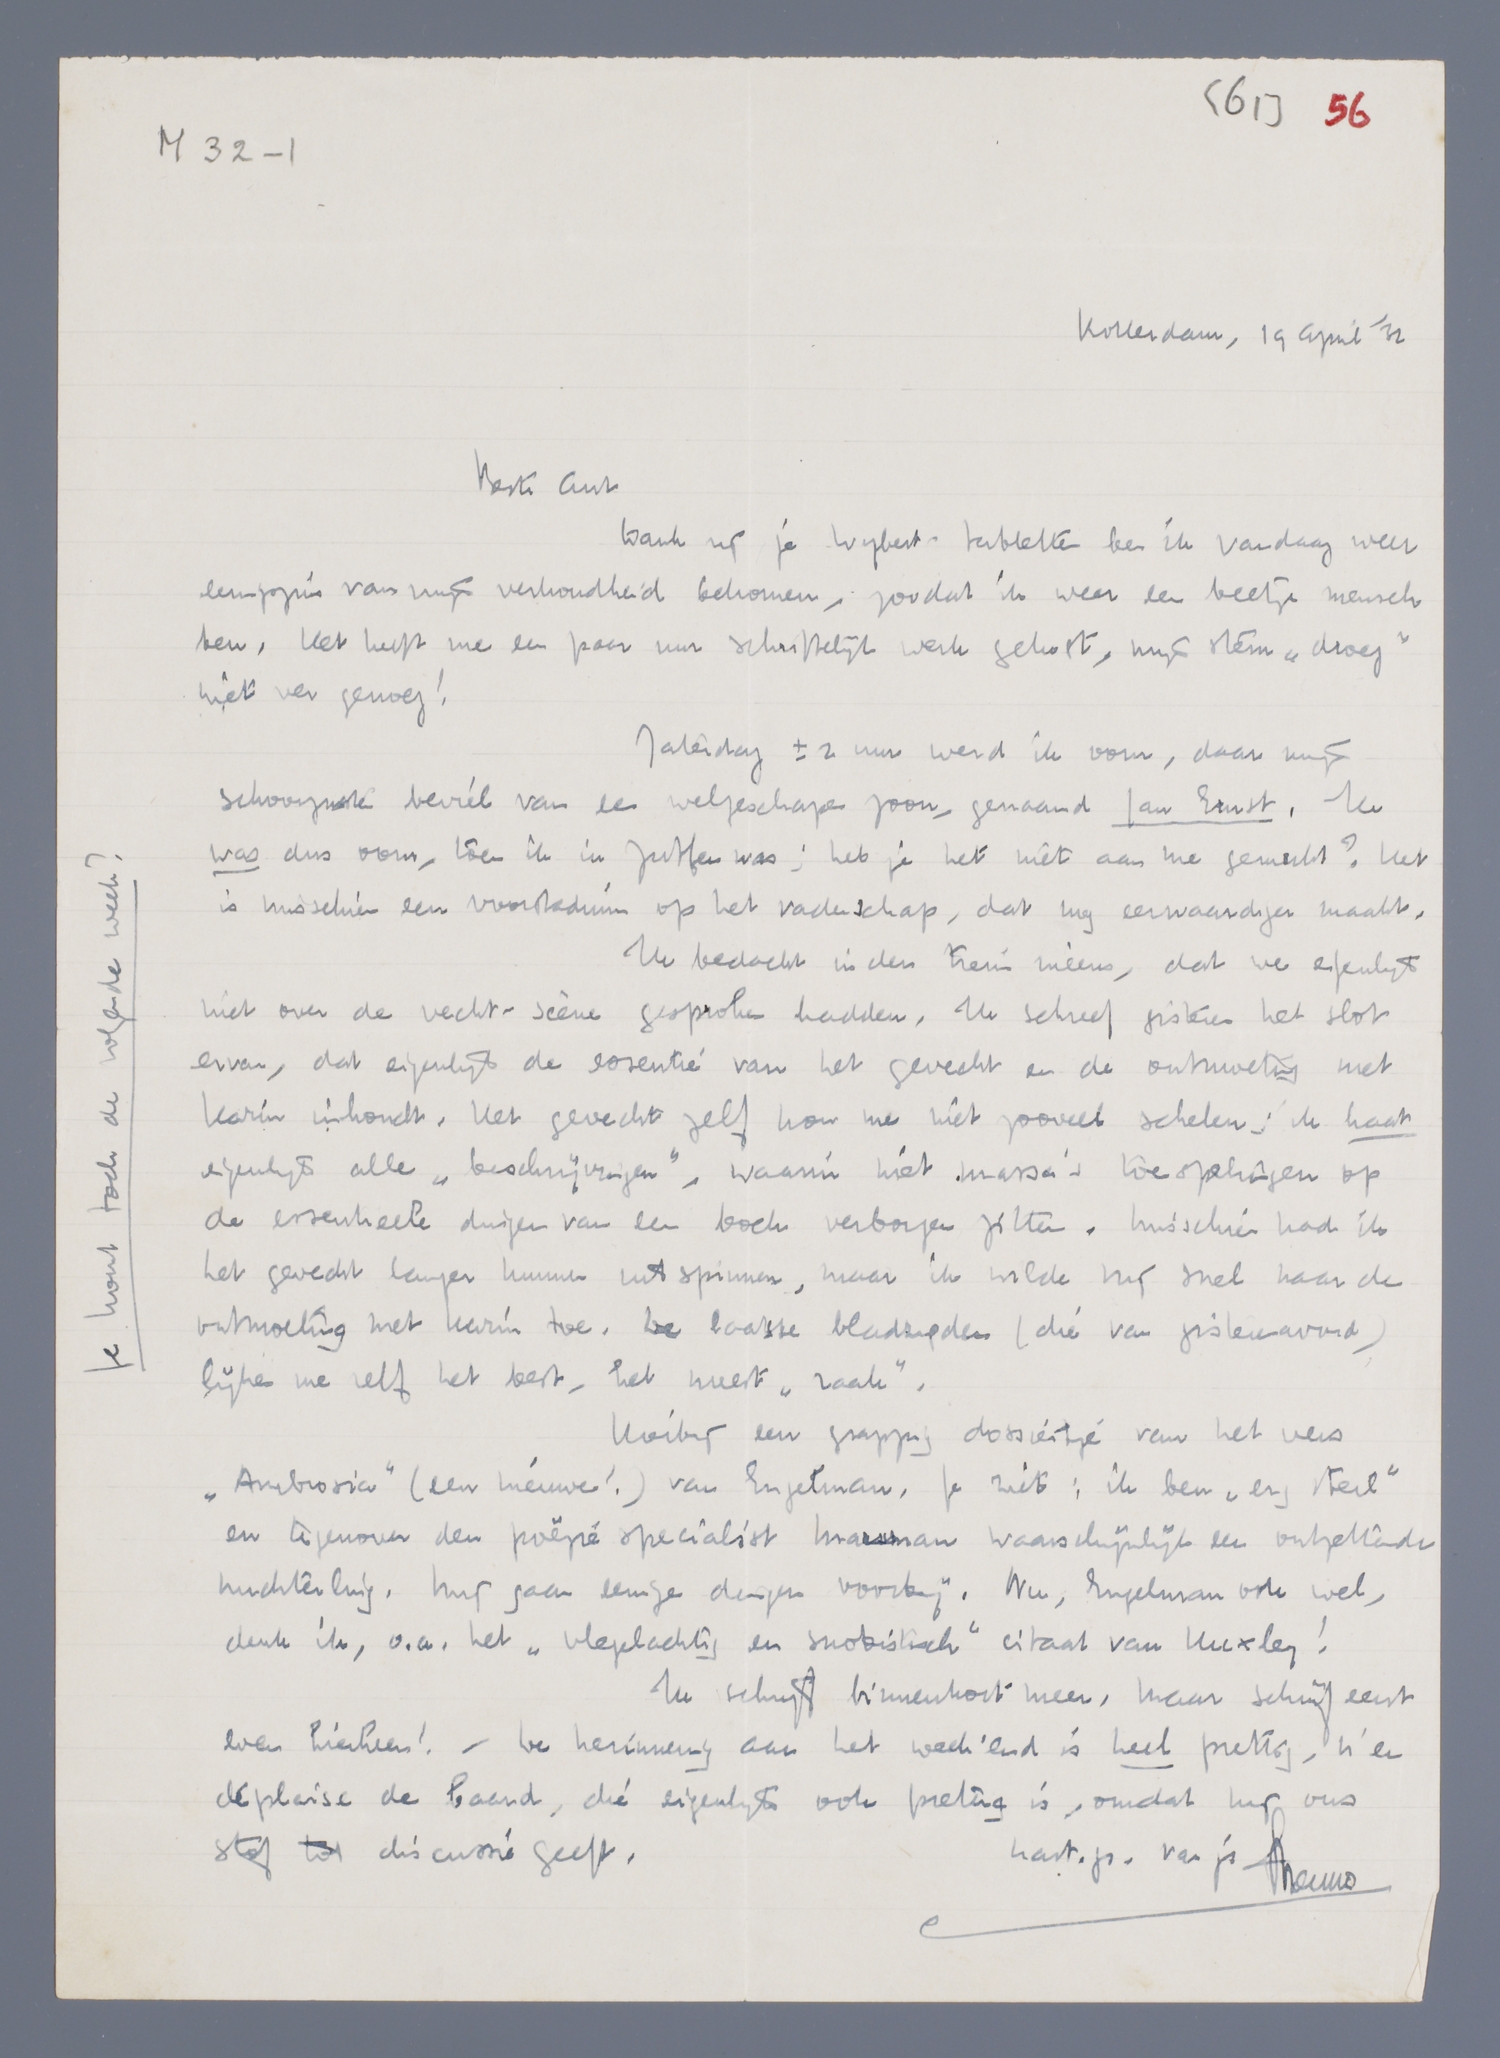 [61] 56
M 32-1
Rotterdam, 19 April '32
Beste Ant
Dank zij je Wybert-tabletten ben ik vandaag weer
eenigszins van mijn verkoudheid bekomen, zoodat ik weer een beetje mensch
ben. Het heeft me een paar uur schriftelijk werk gekost, mijn stem „droeg"
niet ver genoeg!
Zaterdag ± 2 uur werd ik oom, daar mijn
schoonzuster beviel van een welgeschapen zoon, genaamd Jan Ernst. Ik
was dus oom, toen ik in Zutfen was; heb je het niet aan me gemerkt? Het
is misschien een voorstadium op het vaderschap, dat mij eerwaardiger maakt.
Ik bedacht in den trein ineens, dat we eigenlijk
niet over de vecht-scène gesproken hadden. Ik schreef gisteren het slot
ervan, dat eigenlijk de essentie van het gevecht en de ontmoeting met
Karin inhoudt. Het gevecht zelf kon me niet zooveel schelen; ik haat
eigenlijk alle „beschrijvingen", waarin niet massa's toespelingen op
de essentieele dingen van een boek verborgen zitten. Misschien had ik
het gevecht langer kunnen uitspinnen, maar ik wilde nog snel naar de
ontmoeting met Karin toe. De laatste bladzijden (die van gisterenavond)
lijken me zelf het best, het meest „raak".
Hierbij een grappig dossiertje van het vers
„Ambrosia" (een nieuwe!) van Engelman. Je ziet: ik ben „erg steil"
en tegenover den poëzie specialist Marsman waarschijnlijk een ontzettende
nuchterling. Mij gaan eenige dingen voorbij. Nu, Engelman ook wel,
denk ik, o.a. het „vlegelachtig en snobistisch" citaat van Huxley!
Ik schrijf binnenkort meer. Maar schrijf eerst
even hierheen! – De herinnering aan het week'end is heel prettig, n'en
déplaise de baard, die eigenlijk ook prettig is, omdat hij ons
stof tot discussie geeft.
hart. gr. van je Menno
Je komt toch de volgende week?